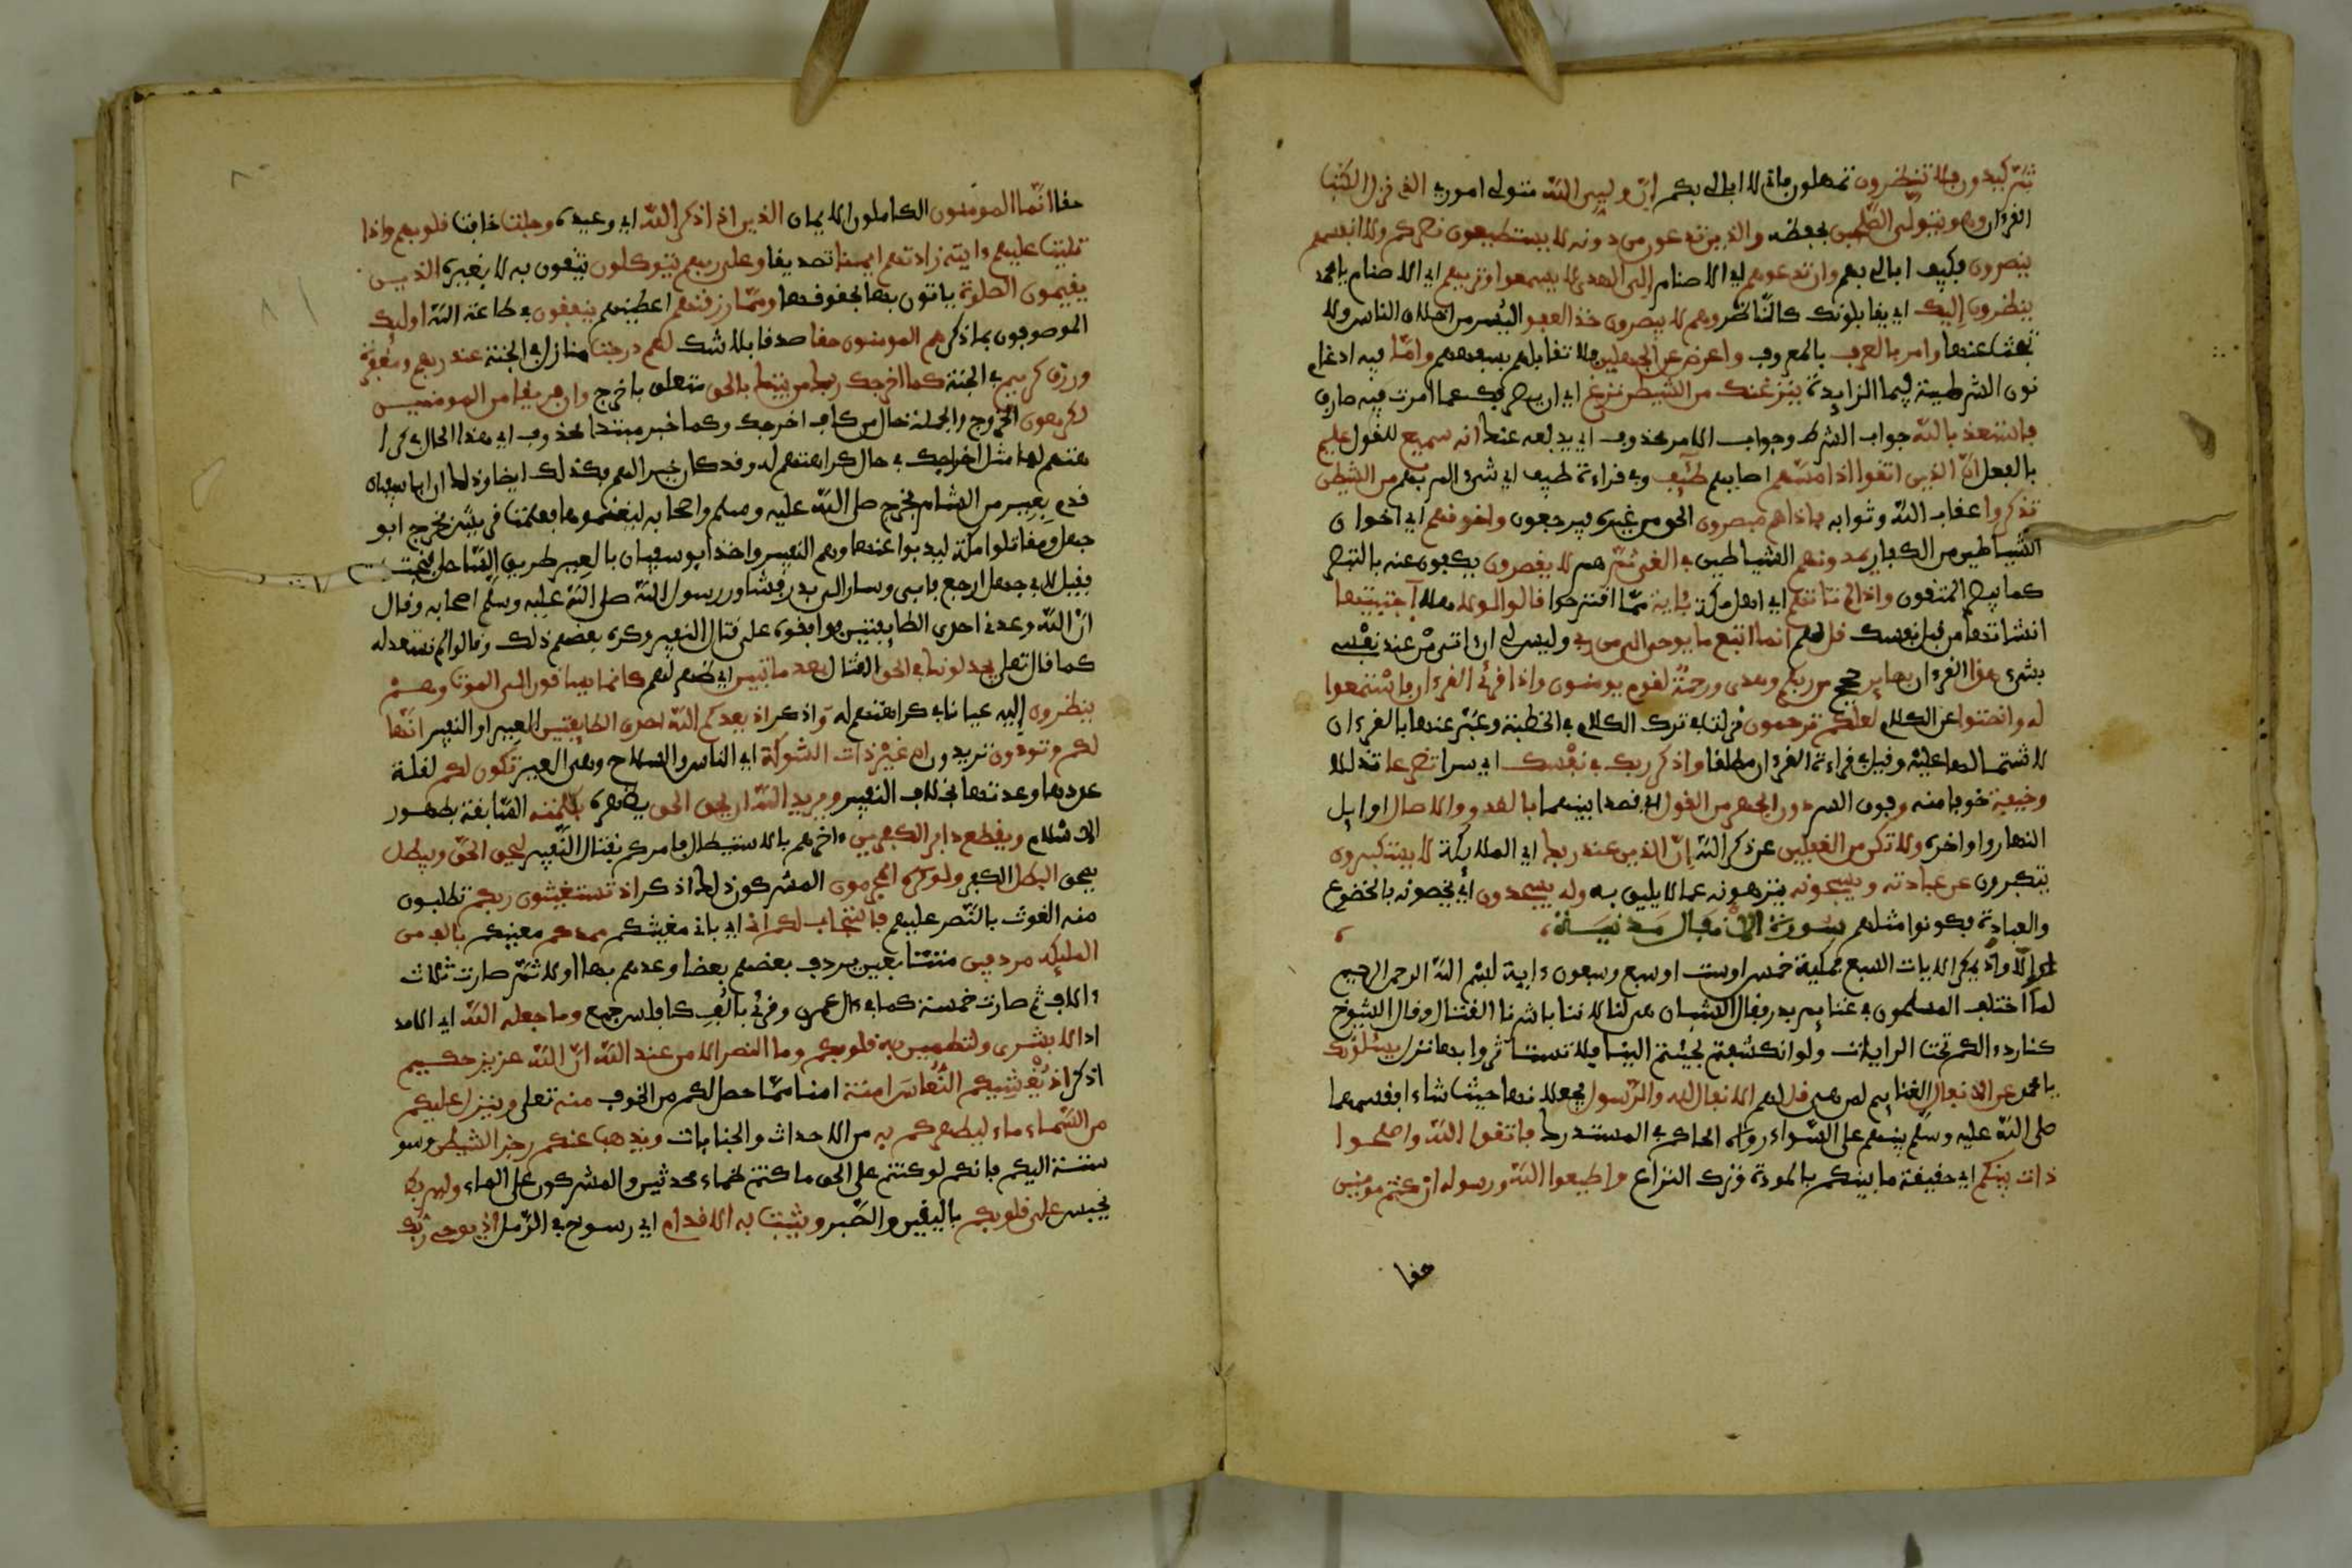 ثم كيدون فلا تنظرون تمهلون فاني لا ابالي بكم ان وليى الله متولى اموري الذي نزل الكتب
القرءان وهو يتولى الصلحين بحفظه والذين تدعون من دونه لا يستطيعون نصركم ولا انفسهم
ينصرون فكيف ابالي بهم وان تدعوهم اي الاصنام الى الهدى لا يسمعوا وتريهم اي الاصنام يا محمد
ينظرون إليك اي يقابلونك كالناظر وهم لا يبصرون خذ العفو اليسر من اخلاق الناس ولا
تبحث عنها وامر بالعرف بالمعروف واعرض عن الجهلين فلا تقابلهم بسفههم واما فيه ادغام
نون الشرطية في ما الزايدة ينزغنك من الشيطن نزغ اي ان يصرفك عما امرت به صارف
فاستعذ بالله جواب الشرط وجواب الامر محذوف اي يدفعه عنك انه سميع للقول عليم
بالفعل ان الذين اتقوا اذا مسهم اصابهم طئف وفي قراءة طيف اي شىء الم بهم من الشيطن
تذكروا عقاب الله وثوابه فاذا هم مبصرون الحق من غيره فيرجعون واخونهم اي اخوان
الشياطين من الكفار يمدونهم الشياطين في الغي ثم هم لا يقصرون يكفون عنه بالتبصر
كما يبصر المتقون واذا لم تاتهم اي اهل مكة بئاية مما اقترحوا قالوا لولا هلا اجتبيتها
انشاتها من قبل نفسك قل لهم انما اتبع ما يوحى الى من ربي وليس لي ان اتي من عند نفسي
بشىء هذا القرءان بصاير حجج من ربكم وهدى ورحمة لقوم يومنون واذا قرئ القرءان فاستمعوا
له وانصتوا عن الكلام لعلكم ترحمون نزلت في ترك الكلام في الخطبة وعبر عنها بالقرءان
لاشتمالها عليه وقيل في قراءة القرءان مطلقا واذكر ربك في نفسك اي سرا تضرعا تذللا
وخيفة خوفا منه وفوق السر دون الجهر من القول اي قصدا بينهما بالغدو والاصال اوايل
النهار واواخره ولا تكن من الغفلين عن ذكر الله إن الذين عند ربك اي الملايكة لا يستكبرون
يتكبرون عن عبادته ويسبحونه ينزهونه عما لا يليق به وله يسجدون اي يخصونه بالخضوع
والعبادة فكونوا مثلهم سورة الانفال مدنية
او الا واذ يمكر الايات السبع فمكية خمس او ست او سبع وسبعون ءاية بسم الله الرحمن الرحيم
لما اختلف المسلمون في غنايم بدر فقال الشبان هي لنا لاننا باشرنا القتال وقال الشيوخ
كنا ردءا لكم تحت الرايات ولو انكشفتم لجئتم الينا فلا تستاثروا بها نزل يسئلونك
يا محمد عن الانفال الغنايم لمن هي قل لهم الانفال لله والرسول يجعلانها حيث شاء فقسمها
صلى الله عليه وسلم بينهم على السواء رواه الحاكم في المستدرك فاتقوا الله واصلحوا
ذات بينكم اي حقيقة ما بينكم بالمودة وترك النزاع واطيعوا الله ورسوله ان كنتم مومنين
حقا
حقا انما المومنون الكاملون الايمان الذين اذا ذكر الله اي وعيده وجلت خافت قلوبهم واذا
تليت عليهم ءايته زادتهم ايمنا تصديقا وعلى ربهم يتوكلون يثقون به لا بغيره الذين
يقيمون الصلوة ياتون بها بحقوقها ومما رزقنهم اعطينهم ينفقون في طاعة الله اوليك
الموصوفون بما ذكر هم المومنون حقا صدقا بلا شك لهم درجت منازل في الجنة عند ربهم ومغفرة
ورزق كريم في الجنة كما اخرجك ربك من بيتك بالحق متعلق باخرج وان فريقا من المومنين
لكرهون الخروج والجملة حال من كاف اخرجك وكما خبر مبتدا محذوف اي هذا الحال في كرا
هتهم لها مثل اخراجك في حال كراهتهم له وقد كان خيرا لهم فكذلك ايضا وذلك ان ابا سفيان
قدم بعير من الشام فخرج صلى الله عليه وسلم واصحابه ليغنموها فعلمت قريش فخرج ابو
جهل ومقاتلوا مكة ليدبوا عنها وهم النفير واخذ ابو سفيان بالعير طريق الساحل فنجت
فقيل لابي جهل ارجع فابى وسار الى بدر فشاور رسول الله صلى الله عليه وسلم اصحابه وقال
ان الله وعدني احدى الطايفتين فوافقوه على قتال النفير وكره بعضهم ذلك وقالوا لم نستعد له
كما قال تعلى يجدلونك في الحق القتال بعد ما تبين اي ظهر لهم كانما يساقون الى الموت وهم
ينظرون إليه عيانا في كراهتهم له واذكر اذ يعدكم الله احدى الطايفتين العير او النفير انها
لكم وتودون تريدون ان غير ذات الشوكة اي الباس والسلاح وهى العير تكون لكم لقلة
عددها وعدتها بخلاف النفير ويريد الله ان يحق الحق يظهره بكلمته السابقة بظهور
الاسلام ويقطع دابر الكفرين ءاخرهم بالاستيصال فامركم بقتال النفير ليحق الحق ويبطل
يمحق البطل الكفر ولو كره المجرمون المشركون ذلك اذكر اذ تستغيثون ربكم تطلبون
منه الغوث بالنصر عليهم فاستجاب لكم اني اي باني مغيثكم ممدكم معينكم بالف من
المليكه مردفين متتابعين يردف بعضهم بعضا وعدهم بها اولا ثم صارت ثلاث
ءالاف ثم صارت خمسة كما في ءال عمرن وقرئ بالف كافلس جمع وما جعله الله اي الامد
اد الا بشرى ولتطمين به قلوبكم وما النصر الا من عند الله ان الله عزيز حكيم
اذكر اذ يغشيكم النعاس امنة امنا مما حصل لكم من الخوف منه تعلى وينزل عليكم
من السماء ماء ليطهركم به من الاحداث والجنابات ويذهب عنكم رجز الشيطن وسو
سته اليكم بانكم لو كنتم على الحق ما كنتم ظماء محدثين والمشركون على الماء وليربط
يحبس على قلوبكم باليقين والصبر ويثبت به الاقدام اي رسوخ في الرمل اذ يوحي ربك